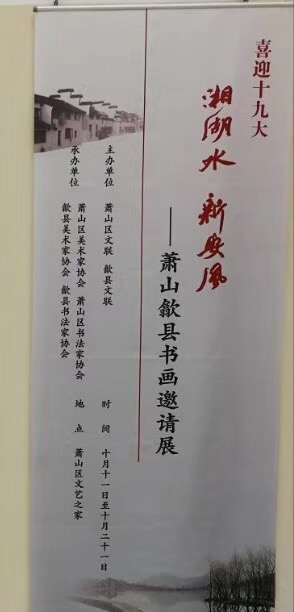 喜迎十九大
湘湖水 新安风
——萧山歙县书画邀请展
主办单位 萧山区文联 歙县文联
承办单位 萧山区美术家协会 萧山区书法家协会
歙县美术家协会 歙县书法家协会
时间 十月十一日至十月二十一日
地点 萧山区文艺之家